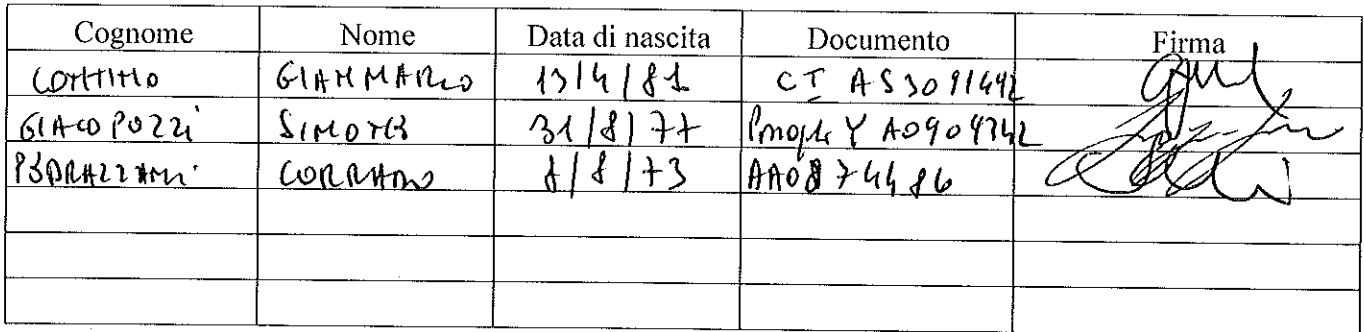 Cognome Nome Data di nascita Documento Firma
CONTINO GIANMARCO 13/4/81 CI AS3091492
GIACOPOZZi SIMONE 31/8/77
PEDRAZZANi CORRADO 8/8/73 AA0874486